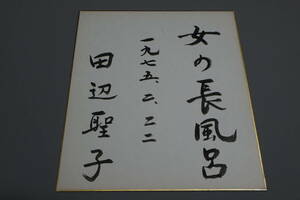 女の長風呂
一九七五、二、二二
田辺聖子